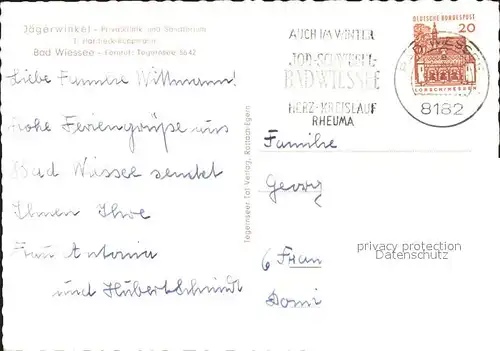 Jägerwinkel - Privatklinik und Sanatorium
Bad Wiessee - Fernruf: Tegernsee 8642
Liebe Familie Wittmann!
Frohe Feriengrüße aus
Bad Wiessee sendet
Ihnen Ihre
Frau Antonia
und Hubert Schmidt
Tegernseer Tal-Verlag, Rottach-Egern
AUCH IM WINTER
JOD-SCHWEFEL-
BAD WIESSEE
HERZ-KREISLAUF
RHEUMA
DEUTSCHE BUNDESPOST
20
LORSCH/HESSEN
BAD WIESSEE
8182
Familie
Georg
6 Fran
Domi
privacy protection
Datenschutz